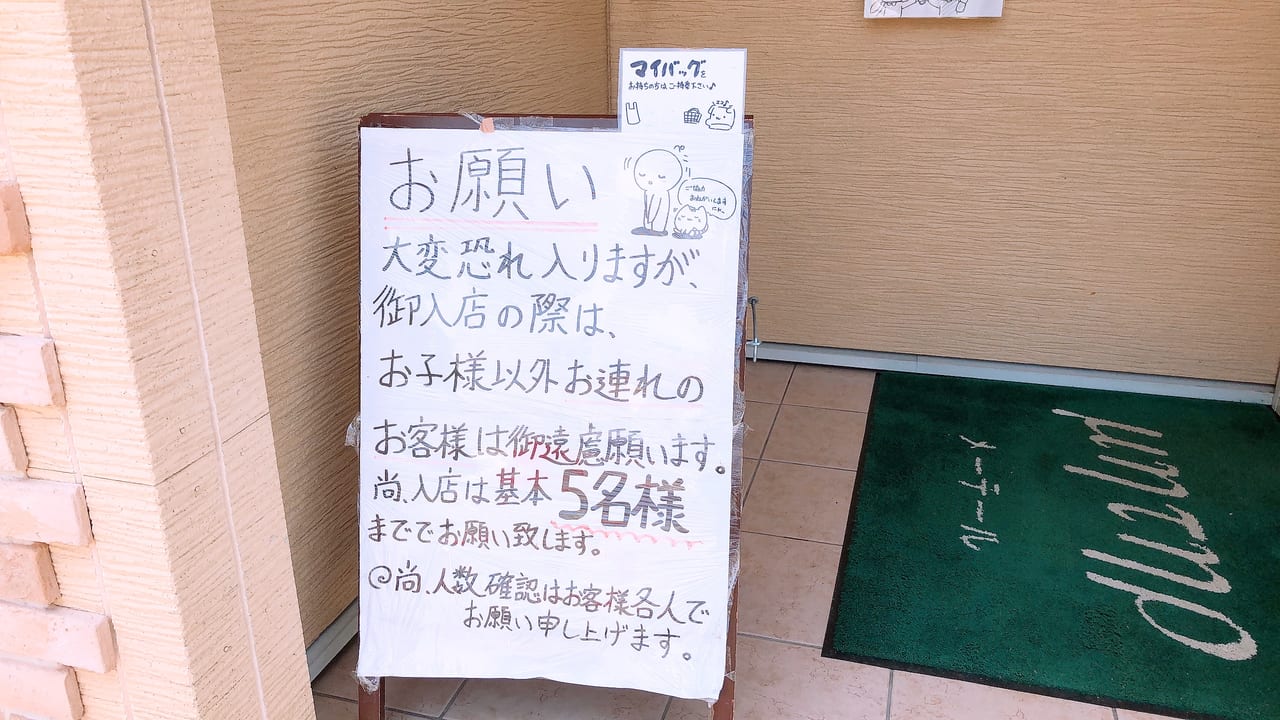 マイバッグを
お持ちの方は、ご持参下さい♪
お願い
ご協力
おねがいします
大変恐れ入りますが、
御入店の際は、
お子様以外お連れの
お客様は御遠慮願います。
尚、入店は基本5名様
まででお願い致します。
@尚、人数確認はお客様各人で
お願い申し上げます。